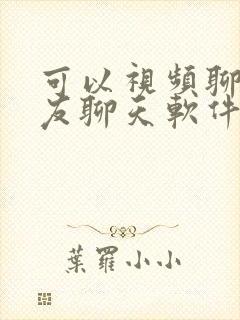 可以視頻聊
友聊天軟件
葉羅小小